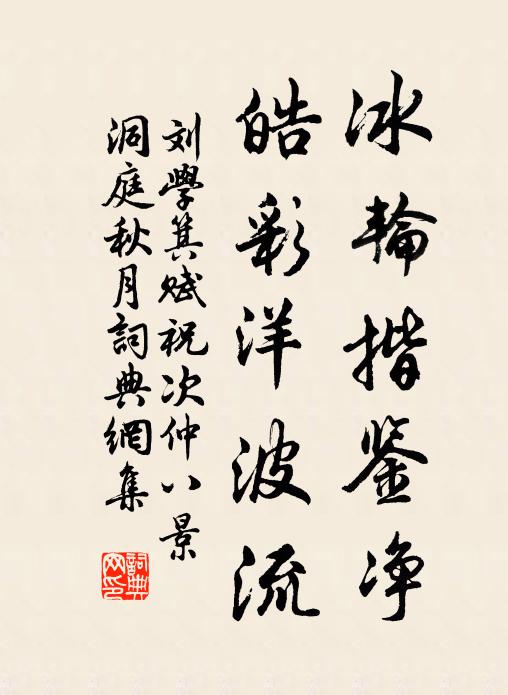 冰輪揩鉴净
皓彩洋波流
刘學箕赋祝次仲八景
洞庭秋月詞典網集
詞典网印